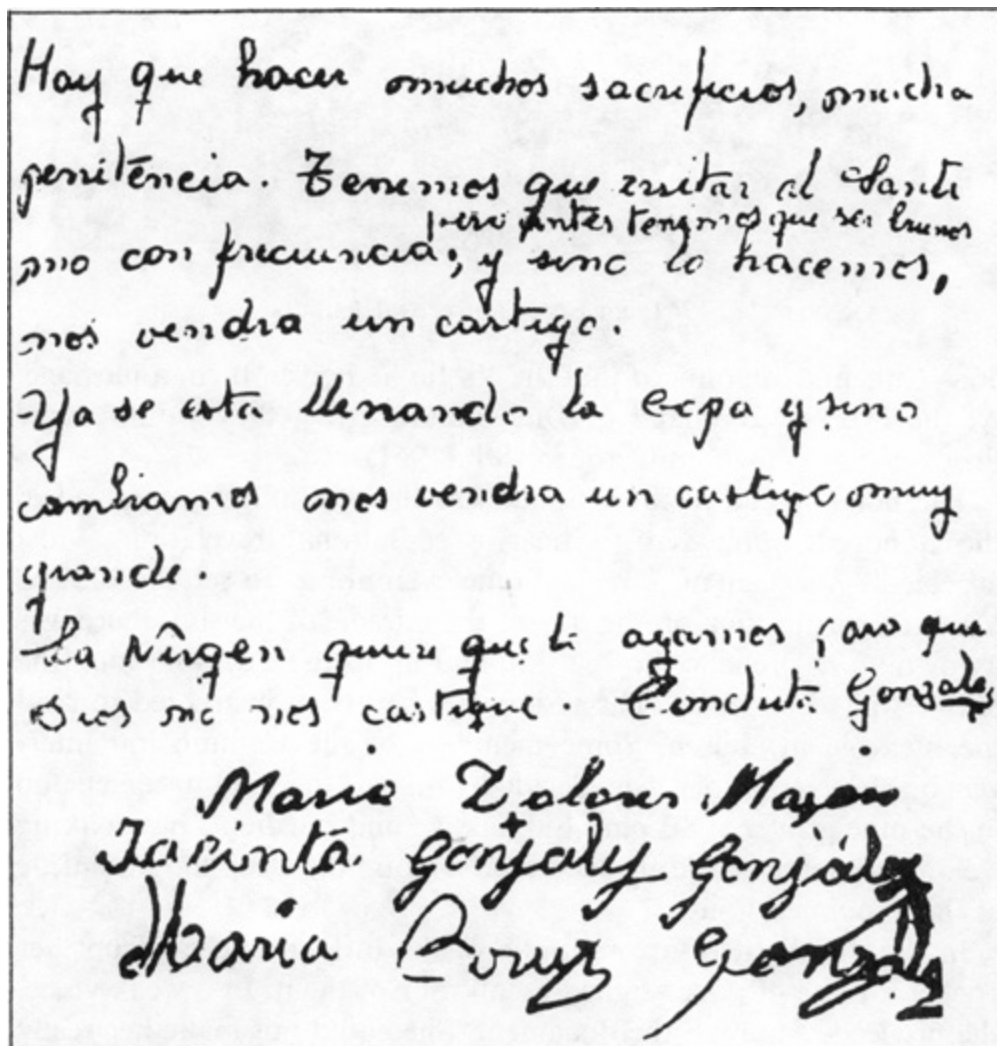 Hay que hacer muchos sacrificios, mucha
penitencia. Tenemos que visitar al Santi
pero antes tenemos que ser buenos
mo con frecuencia; y sino lo hacemos,
nos vendra un castigo.
Ya se esta llenando la copa y sino
cambiamos nos vendra un castigo muy
grande.
La Virgen quiere que lo agamos para que
Dios no nos castigue. Conchita Gonzalez
Maria Dolores Mazon
Jacinta Gonzalez González
Maria Cruz Gonzalez